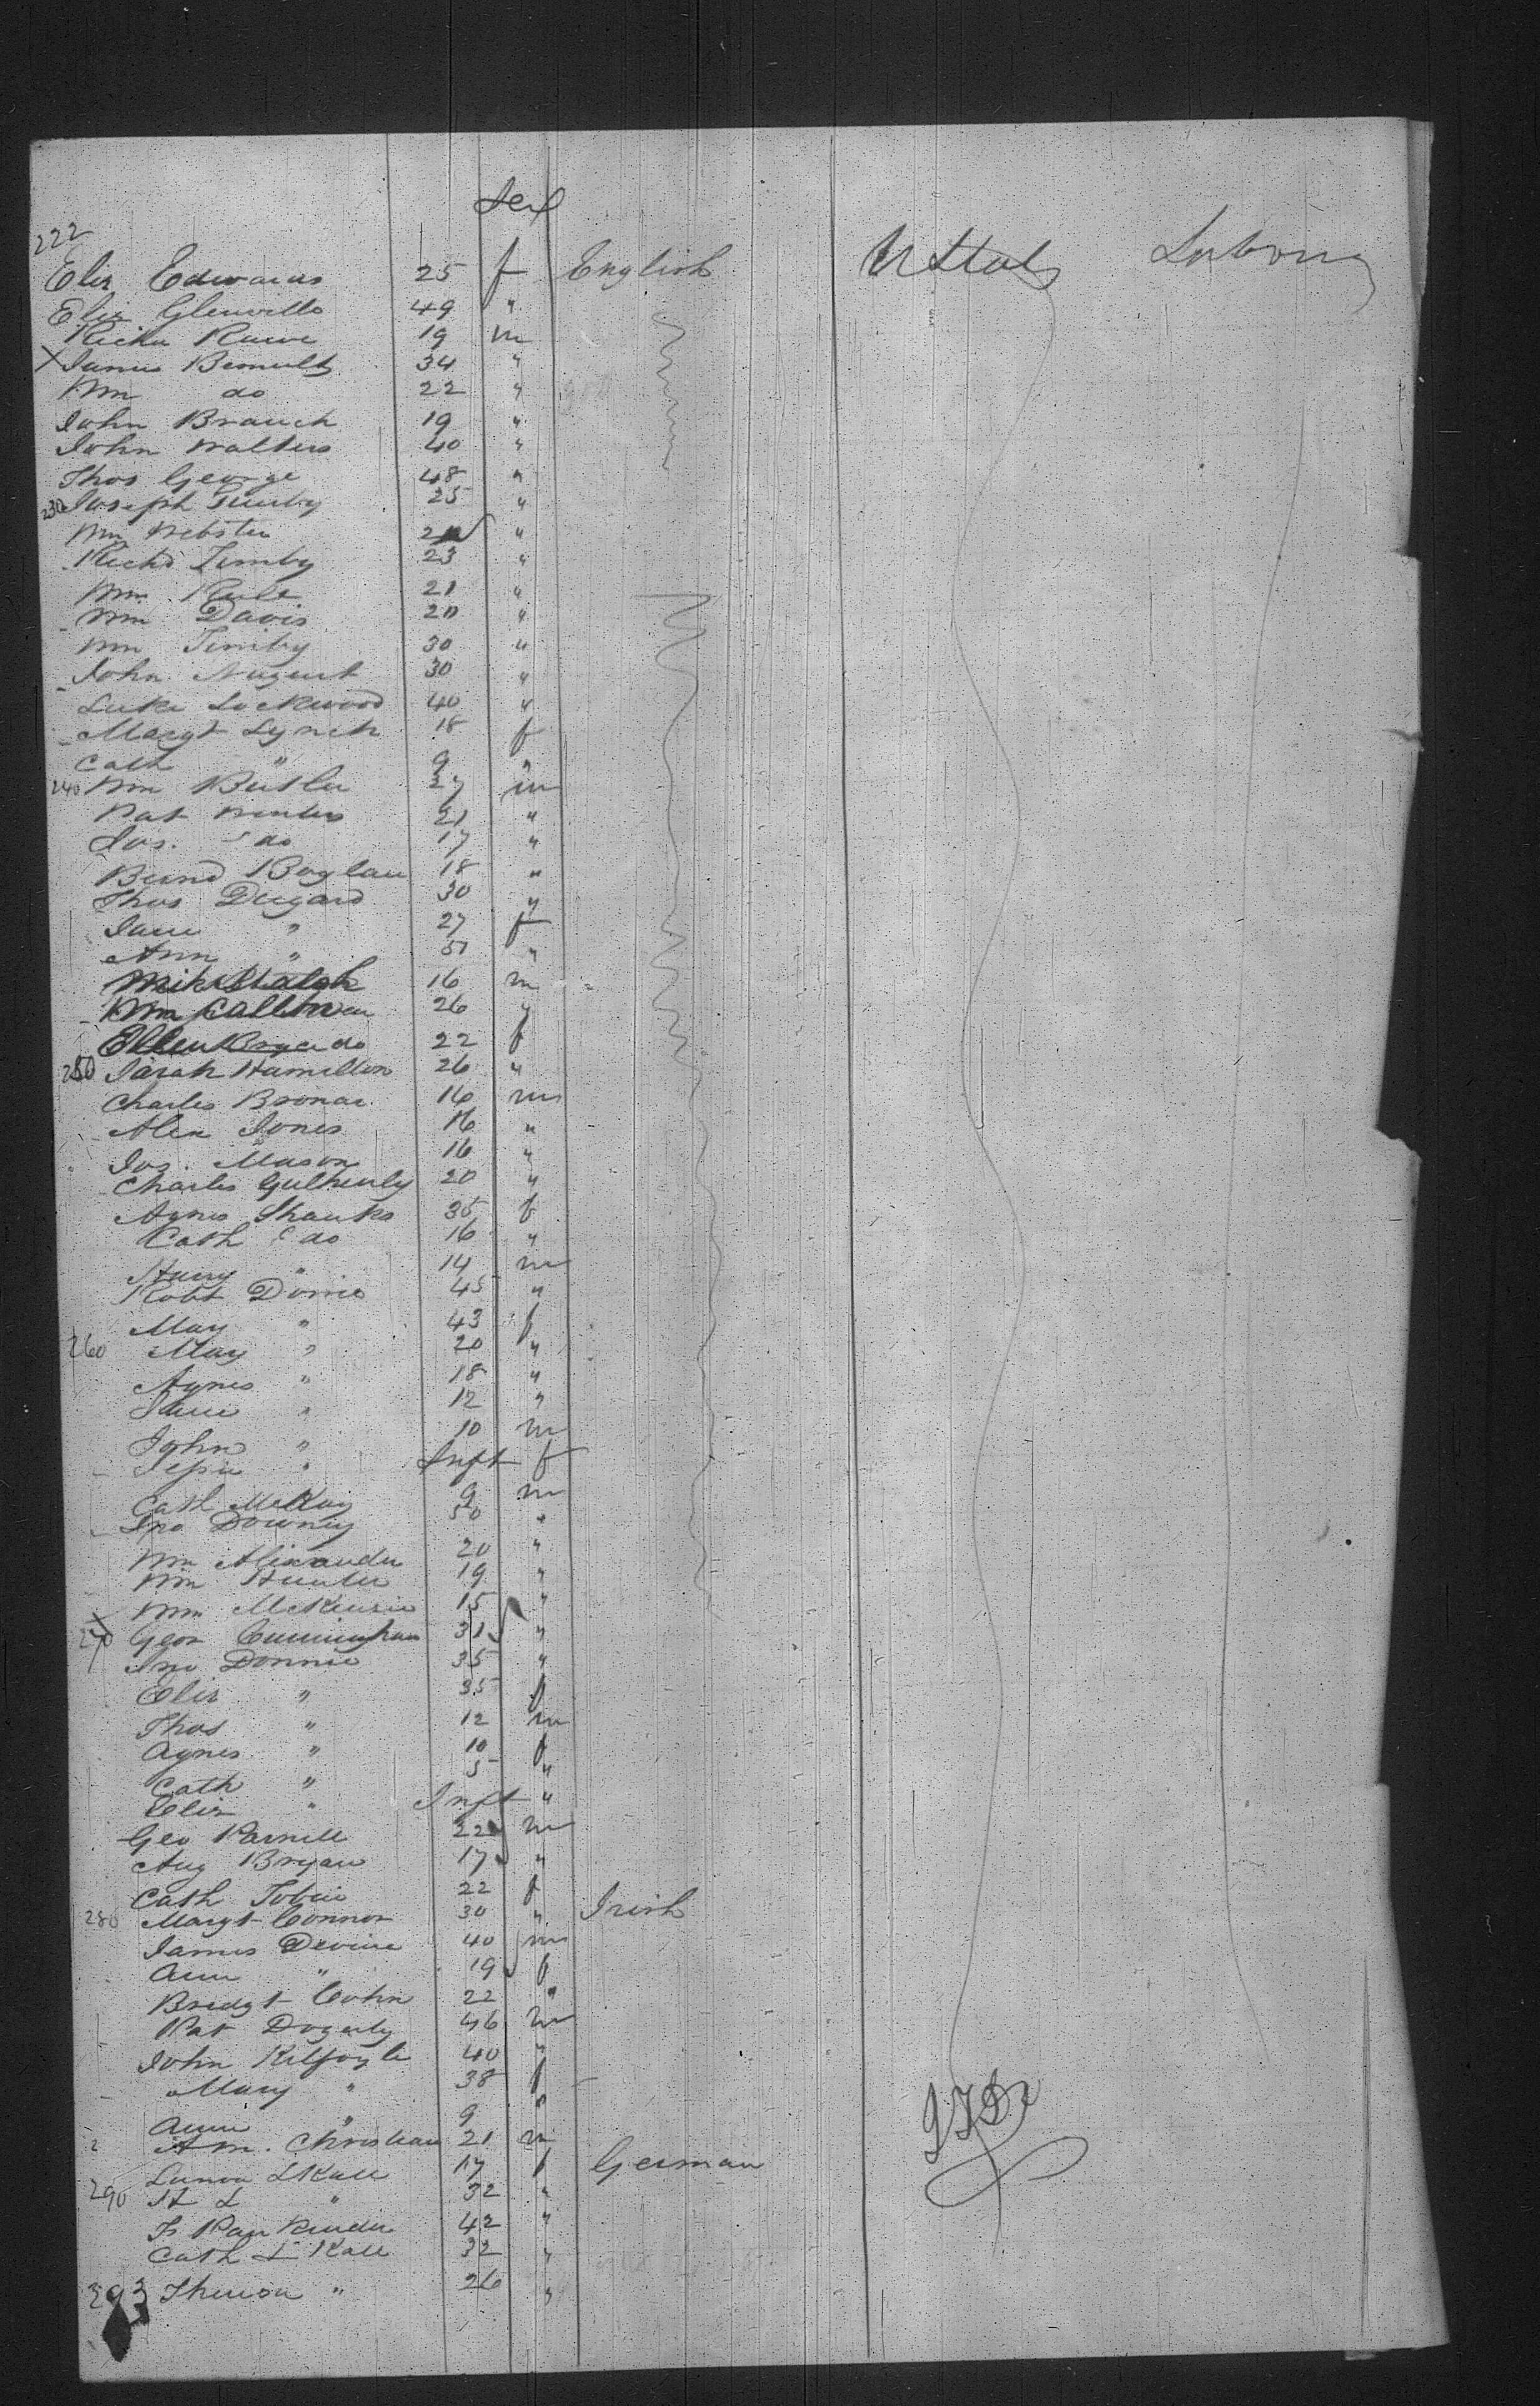 Sex
222
Eliz Edwards 25 f English U States Labour
Eliz Glenville 49 "
Richd Rowe 19 m
X James Bennett 34 "
Wm do 22 "
John Branch 19 "
John Walters 40 "
Thos George 48 "
230 Joseph Timby 25 "
Wm Webster "
Richd Timby 23 "
Wm 21 "
Wm Davis 20 "
Wm Timby 30 "
John Nugent 30 "
Luke Lockwood 40 "
Margt Lynch 18 f
Cath " 9 "
240 Wm Butler 27 m
Pat 21 "
Jas. do 17 "
Bernd Boylan 18 "
Thos Dugard 30 "
Jane " 27 f
Ann " "
Mik Walsh 16 m
Wm 26 "
Ellen do 22 f
250 Sarah Hamilton 26 "
Charles 16 m
Alex Jones 16 "
Jos. Mason 16 "
Charles 20 "
Agnes Shanks 35 f
Cath do 16 "
Harry " 14 m
Robt 45 "
May " 43 f
260 May " 20 "
Agnes " 18 "
Jane " 12 "
John " 10 m
" Inft f
Cath McKay 9 m
Jno Downey 50 "
Wm Alexander 20 "
Wm Hunter 19 "
Wm McKenzie 15 "
270 Geor Cunningham 31 "
Jno Donnie 35 "
Eliz " 35 f
Thos " 12 m
Agnes " 10 f
Cath " 5 "
Eliz " Inft "
Geo Parnell 22 m
Aug Bryan 17 "
Cath Tobin 22 f
280 Margt Connor 30 " Irish
James Devine 40 m
Ann " 19 f
Bridgt 22 "
Pat Dogerty 46 m
John Kilfoyle 40 "
Mary " 38 f
Ann " 9 "
Am. Christian 21 m
17 f German
290 " 32 "
42 "
Cath 32 "
293 " 26 "